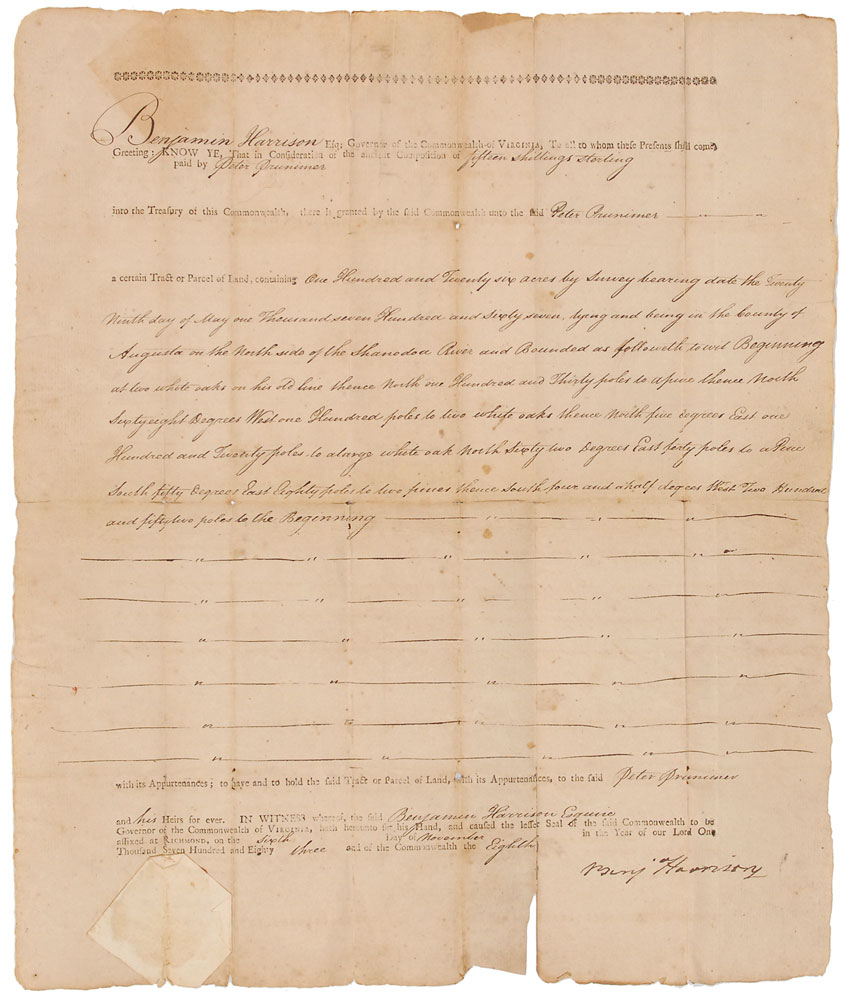 Benjamin Harrison Esq; Governor of the Commonwealth of VIRGINIA, To all to whom these Presents shall come
Greeting: KNOW YE, That in Consideration of the ancient Composition of fifteen Shillings Sterling
paid by Peter Prunimer
into the Treasury of this Commonwealth, there is granted by the said Commonwealth unto the said Peter Prunimer
a certain Tract or Parcel of Land, containing One Hundred and Twenty six acres by Survey bearing date the Twenty
Ninth day of May one Thousand seven Hundred and Sixty seven, lying and being in the County of
Augusta on the North side of the Shanodoa River and Bounded as followeth towit Beginning
at two white oaks on his old line thence North one Hundred and Thirty poles to a pine thence North
Sixty eight Degrees West one Hundred poles to two white oaks thence North five degrees East one
Hundred and Twenty poles to a large white oak North Sixty two Degrees East forty poles to a Pine
South fifty Degrees East Eighty poles to two pines thence South four and a half degees West Two Hundred
and fifty two poles to the Beginning
with its Appurtenances; to have and to hold the said Tract or Parcel of Land, with its Appurtenances, to the said Peter Prunimer
and his Heirs for ever. IN WITNESS whereof, the said Benjamin Harrison Esquire
Governor of the Commonwealth of VIRGINIA, hath hereunto set his Hand, and caused the lesser Seal of the said Commonwealth to be
affixed at RICHMOND, on the Sixth Day of November in the Year of our Lord One
Thousand Seven Hundred and Eighty three and of the Commonwealth the Eighth
Benj.a Harrison